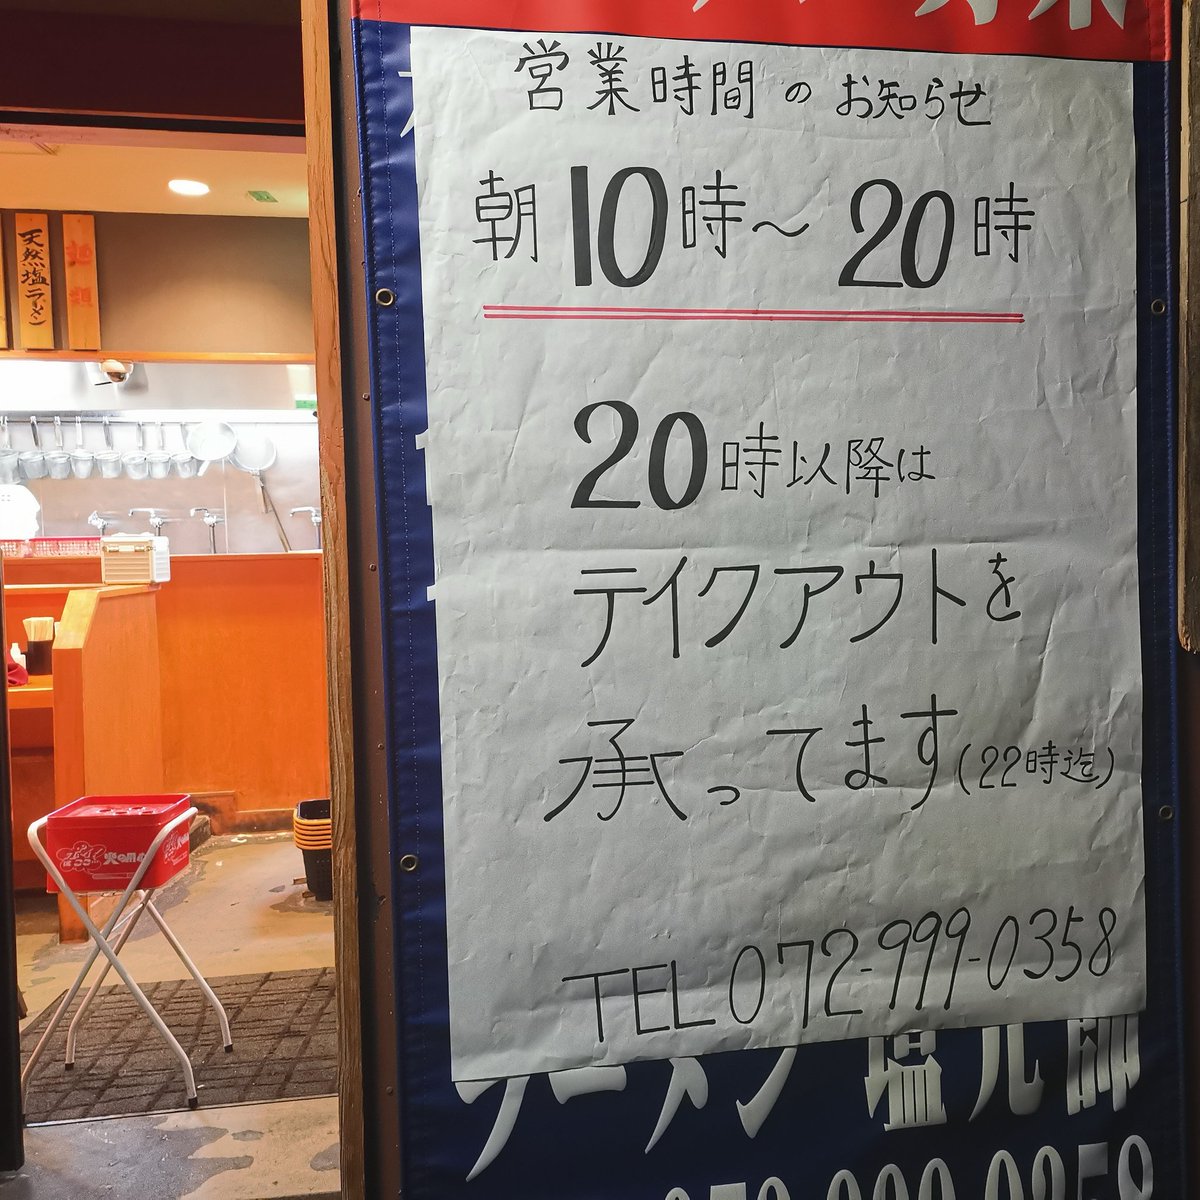 営業時間のお知らせ
朝10時～20時
20時以降は
テイクアウトを
承ってます(22時迄)
TEL 072-999-0358
ラーメン 塩元帥
天然塩ラーメン
麺類